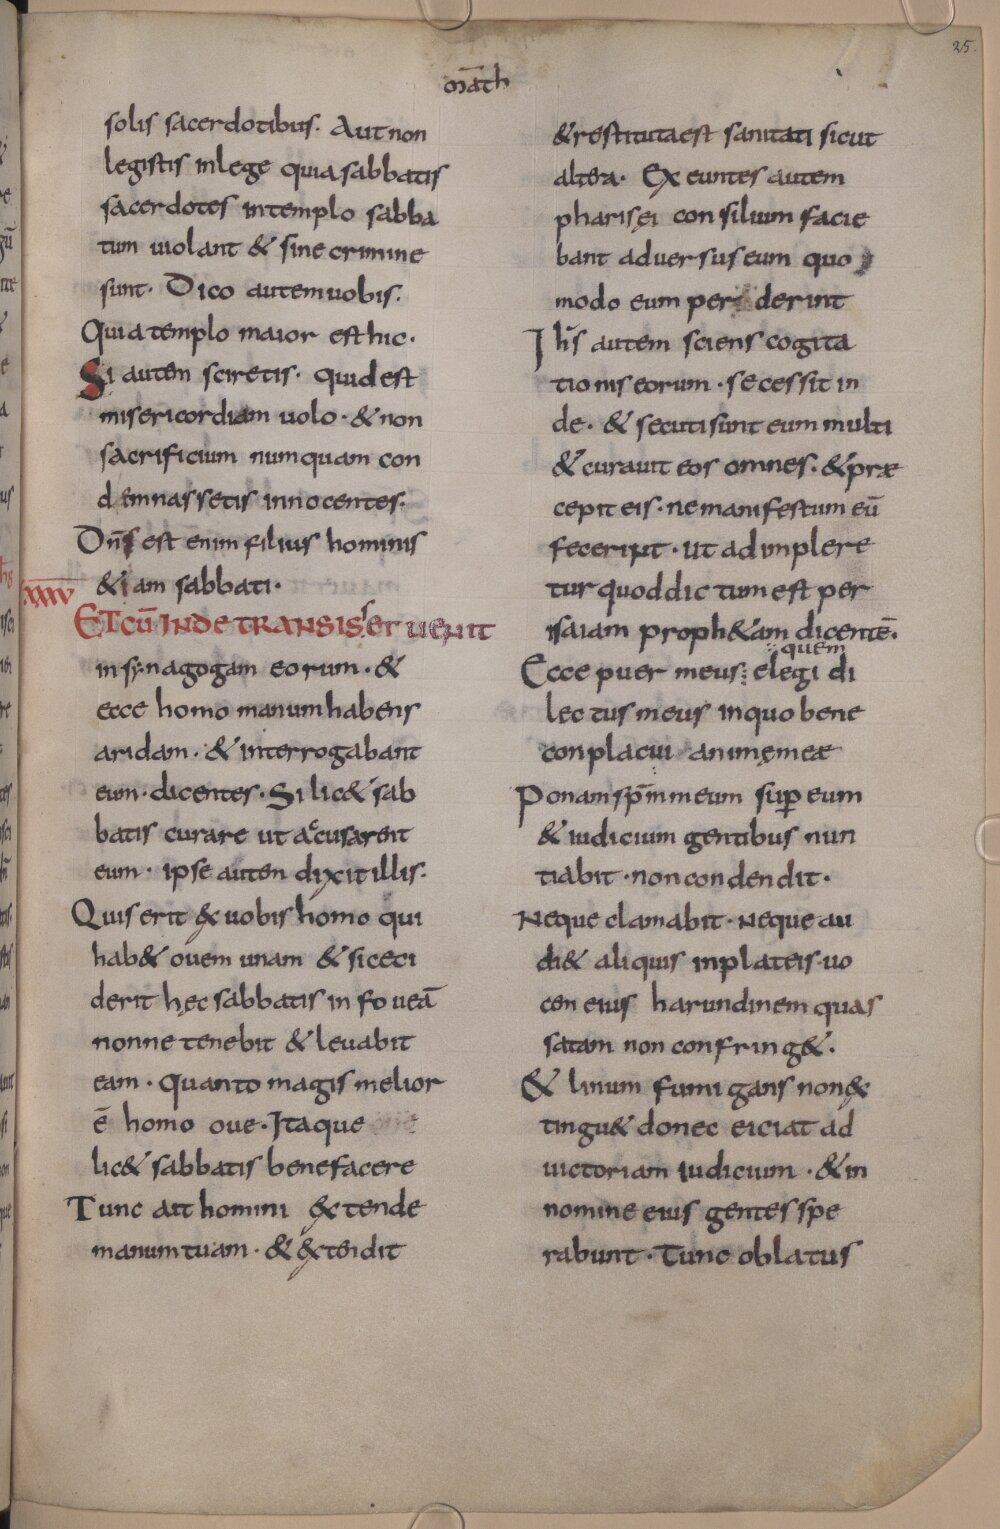 25.
māth
solis sacerdotibus. Aut non
legistis in lege quia sabbatis
sacerdotes in templo sabba
tum uiolant & sine crimine
sunt. Dico autem uobis.
Quia templo maior est hic.
Si autem sciretis. quid est
misericordiam uolo. & non
sacrificium numquam con
demnassetis innocentes.
Dn̄s est enim filius hominis
&iam sabbati.
XXXV
ET cū INDE TRANSISset UENIT
in synagogam eorum. &
ecce homo manum habens
aridam. & interrogabant
eum. dicentes. Si lic& sab
batis curare ut accusarent
eum. ipse auten dixit illis.
Quis erit ex uobis homo qui
hab& ouem unam & si ceci
derit hęc sabbatis in foueā
nonne tenebit & leuabit
eam. Quanto magis melior
ē homo oue. Itaque
lic& sabbatis benefacere
Tunc ait homini extende
manum tuam. & extendit
& restituta est sanitati sicut
altera. Exeuntes autem
pharisęi consilium facie
bant aduersus eum quo
modo eum perderint
Ih̄s autem sciens cogita
tionis eorum. secessit in
de. & secuti sunt eum multi
& curauit eos omnes. & præ
cepit eis. ne manifestum eū
fecerint. ut adimplere
tur quod dictum est per
isaiam proph&am dicentē.
quem
Ecce puer meus elegi di
lectus meus in quo bene
conplacui animę meæ
Ponam sp̄m meum sup eum
& iudicium gentibus nun
tiabit. non condendit.
Neque clamabit. Neque au
di& aliquis in plateis uo
cen eius harundinem quas
satam non confring&.
& linum fumigans non ex
tingu& donec eiciat ad
uictoriam iudicium. & in
nomine eius gentes spe
rabunt. Tunc oblatus